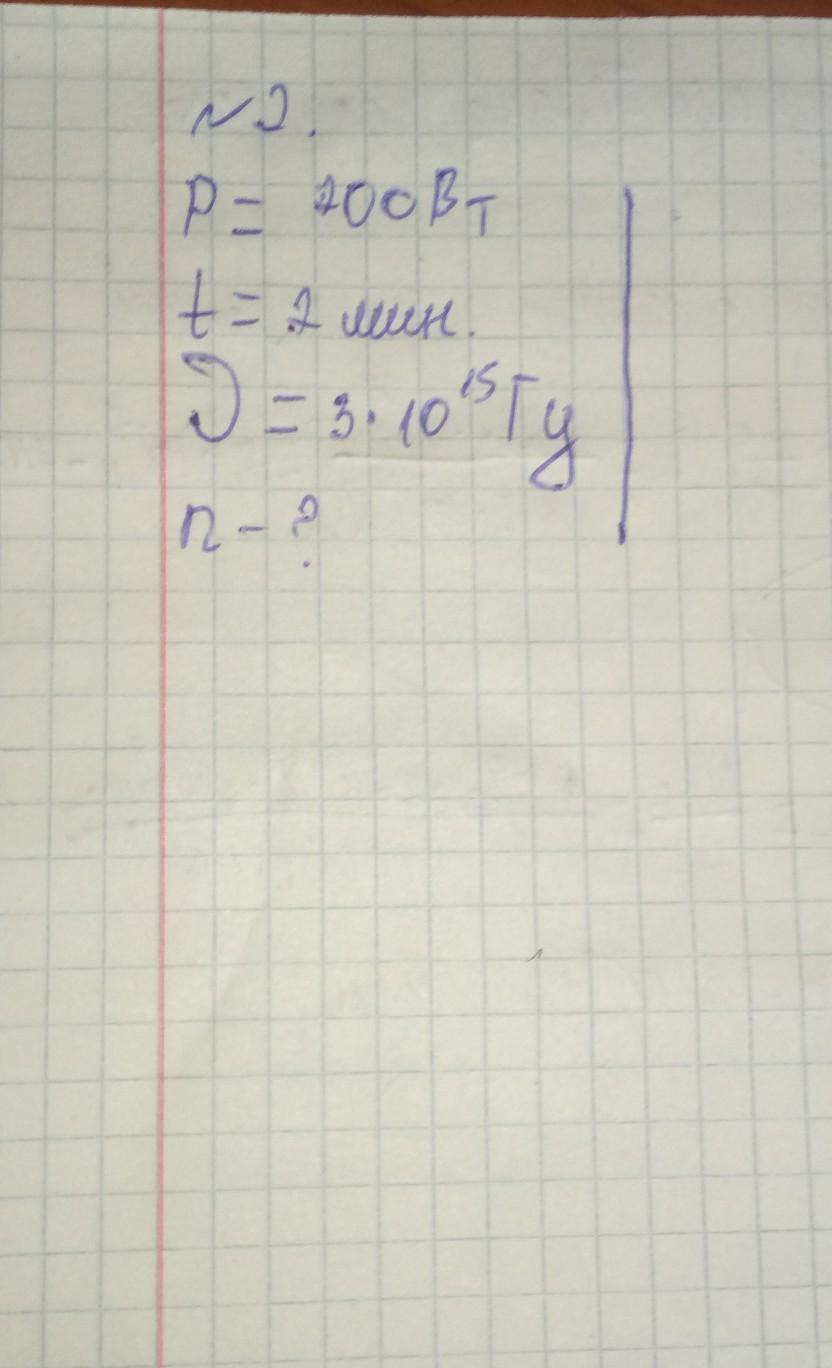 №2.
P = 200Вт
t = 2 мин.
ν = 3·10¹⁵Гц
n - ?